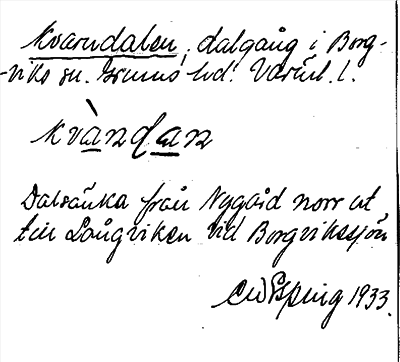 Kvarndalen, dalgång i Borg-
-viks sn. Grums hd. Värml. l.
kvàndan
Dalsänka från Nygård norr ut
till Långviken vid Borgvikssjön
CWEsping 1933.